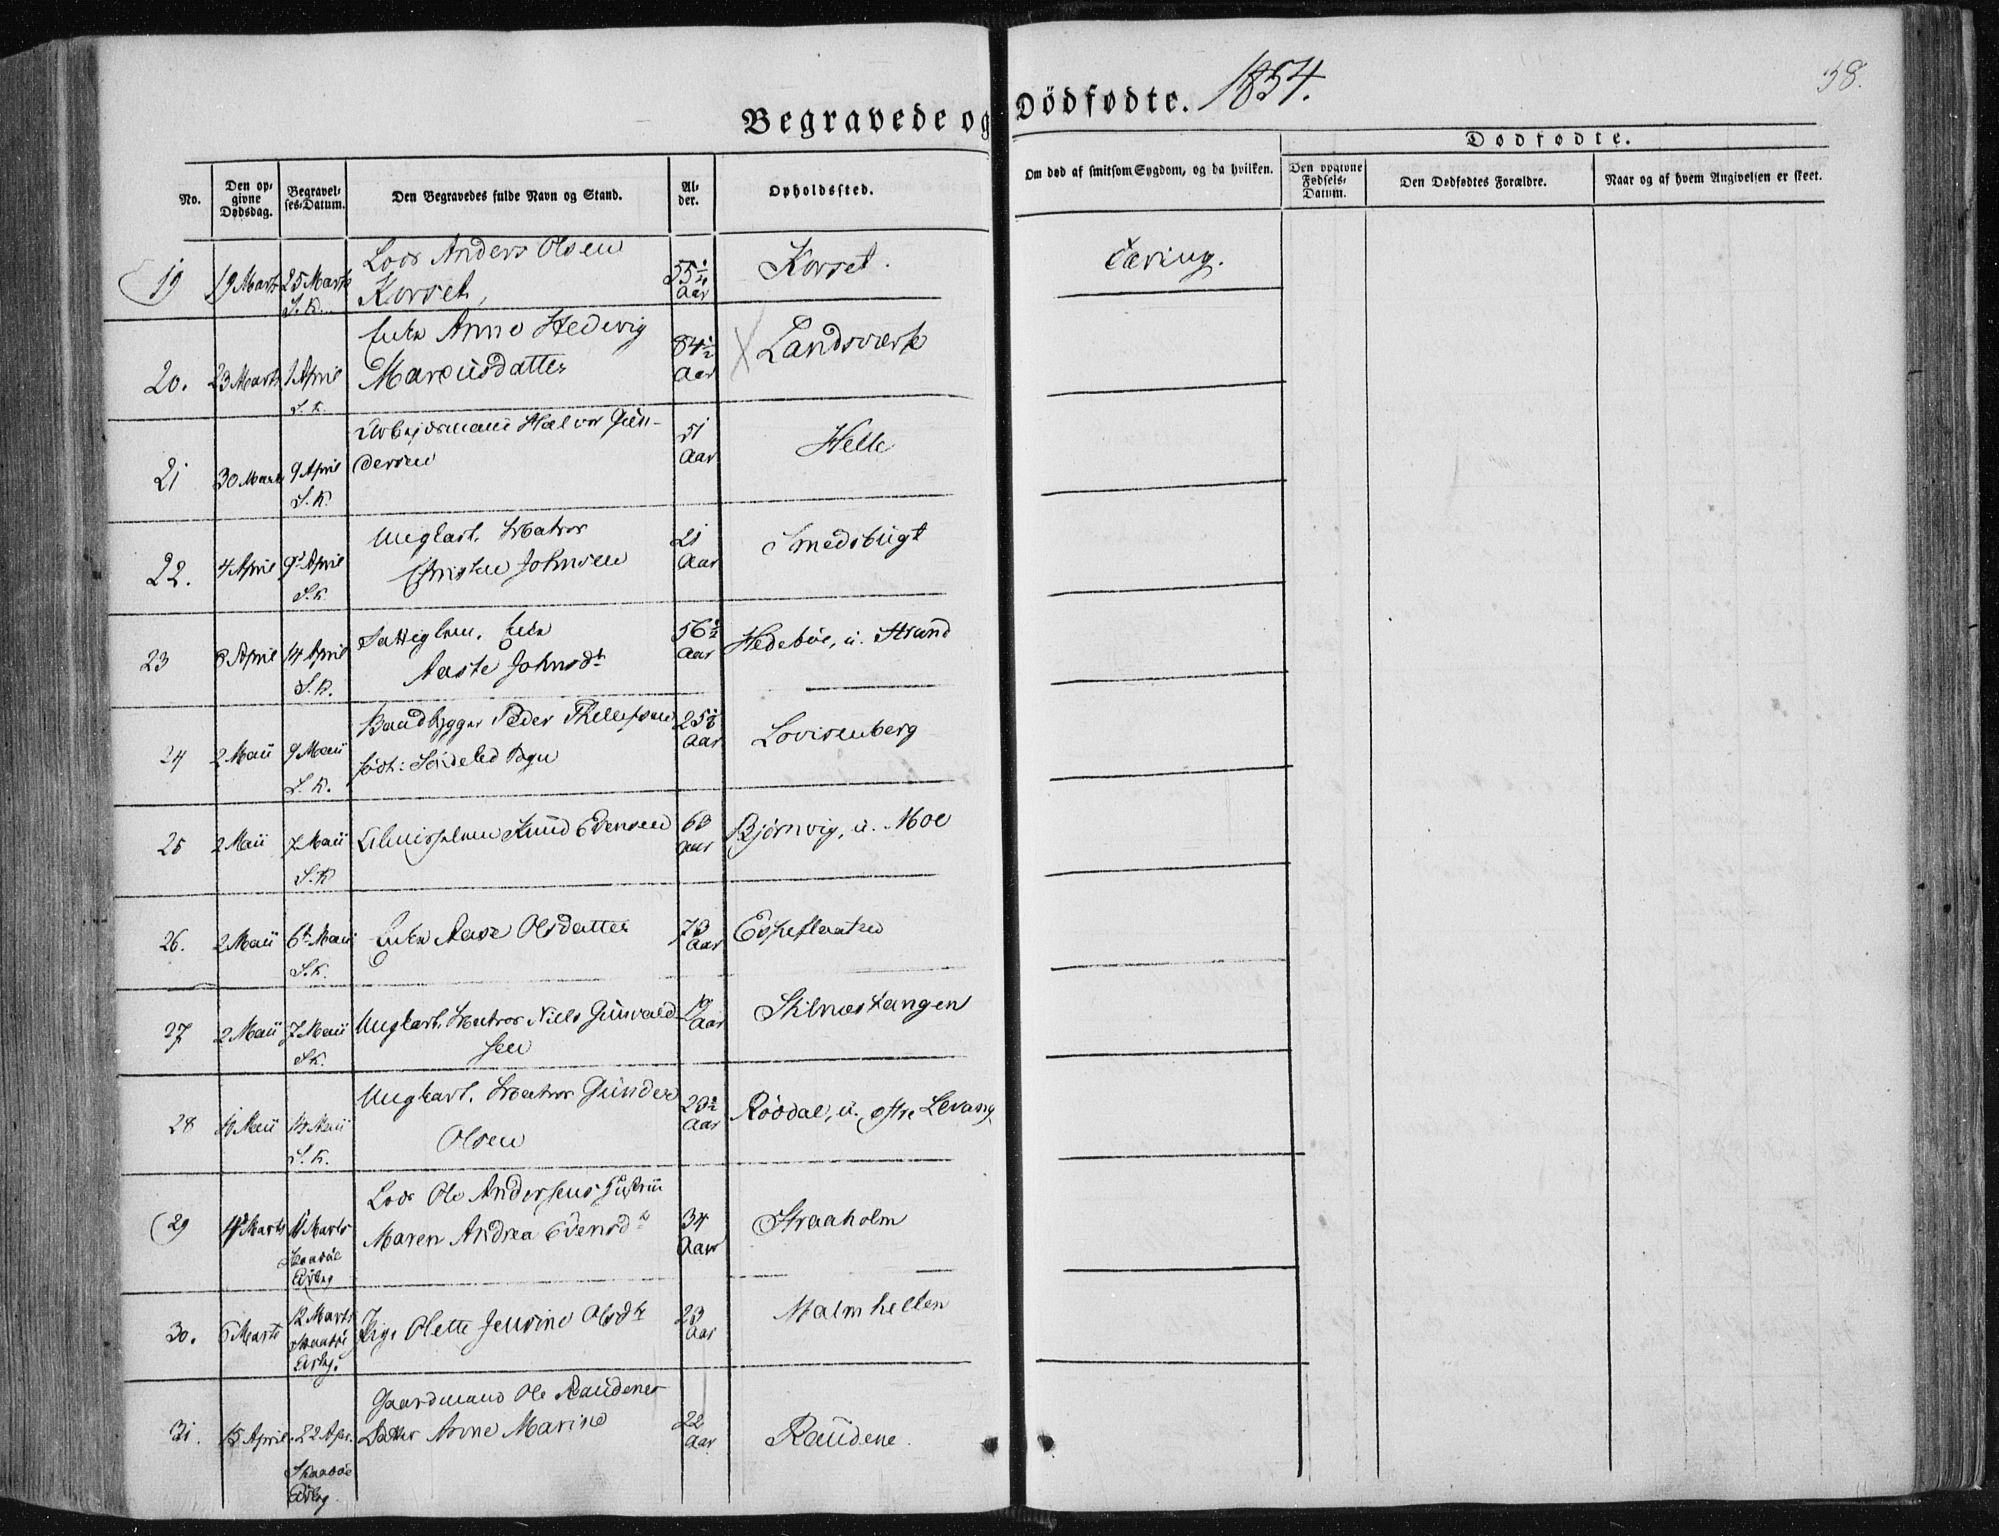 Begravede og Dödfødte. 1854.
58.
Dødfødte.
No.
Den opgivne Dødsdag.
Begravelses-Datum.
Den Begravedes fulde Navn og Stand.
Alder.
Opholdssted.
Om død af smitsom Sygdom, og da hvilken.
Den opgivne Fødsels-Datum.
Den Dødfødtes Forældre.
Naar og af hvem Angivelsen er skeet.
19 19 Marts 25 Marts S. K. Lods Anders Olsen
Korset, 55 1/4 Aar Korset. Tæring.
20. 23 Marts 1 April S. K. Enken Anne Hedevig
Marcusdatter 84 1/2 Aar Landsværk
21 30 Marts 9 April S. K. Arbejdsmand Halvor Gun-
dersen 51 Aar Helle
22. 4 April 9d April S. K. Ungkarl. Matros
Christen Johnsen 21 Aar Smedsbugt
23 6 April 14 April S. K. Fattiglem. Enke
Aaste Johnsdt 56 1/2 Aar Hedebøe, u. Strand
24 2 Maii 9 Maii S. K. Baadbygger Peder Thellefsen
født: Søndeled Sogn 25 Aar Lovisenberg
25 2 Maii 7 Maii S. K. Almisselem Knud Evensen 60 Aar Bjørnvig, u. Moe
26. 2 Maii 6t Maii S. K. Enken Aase Olsdatter 73 Aar Espeflaaten
27 2 Maii 7 Maii S. K. Ungkarl. Matros Niels Gunvald-
sen 19 Aar Stilnestangen
28 Maii Maii S. K. Ungkarl. Matros Gunder
Olsen 20 1/2 Aar Røsdal, u. østre Levang
29 4 Marts 11 Marts Skaabøe Lods Ole Andersens Hustru
Maren Andrea Evensdt 34 Aar Straaholm
30. 6 Marts 12 Marts Skaabøe Pige Olette Jensine Olsdtr 23 Aar Malmhellen
31. 15 April 22 Apr. Skaabøe Gaardmand Ole Raudenes
Datter Anne Marine 22 Aar Raudene.